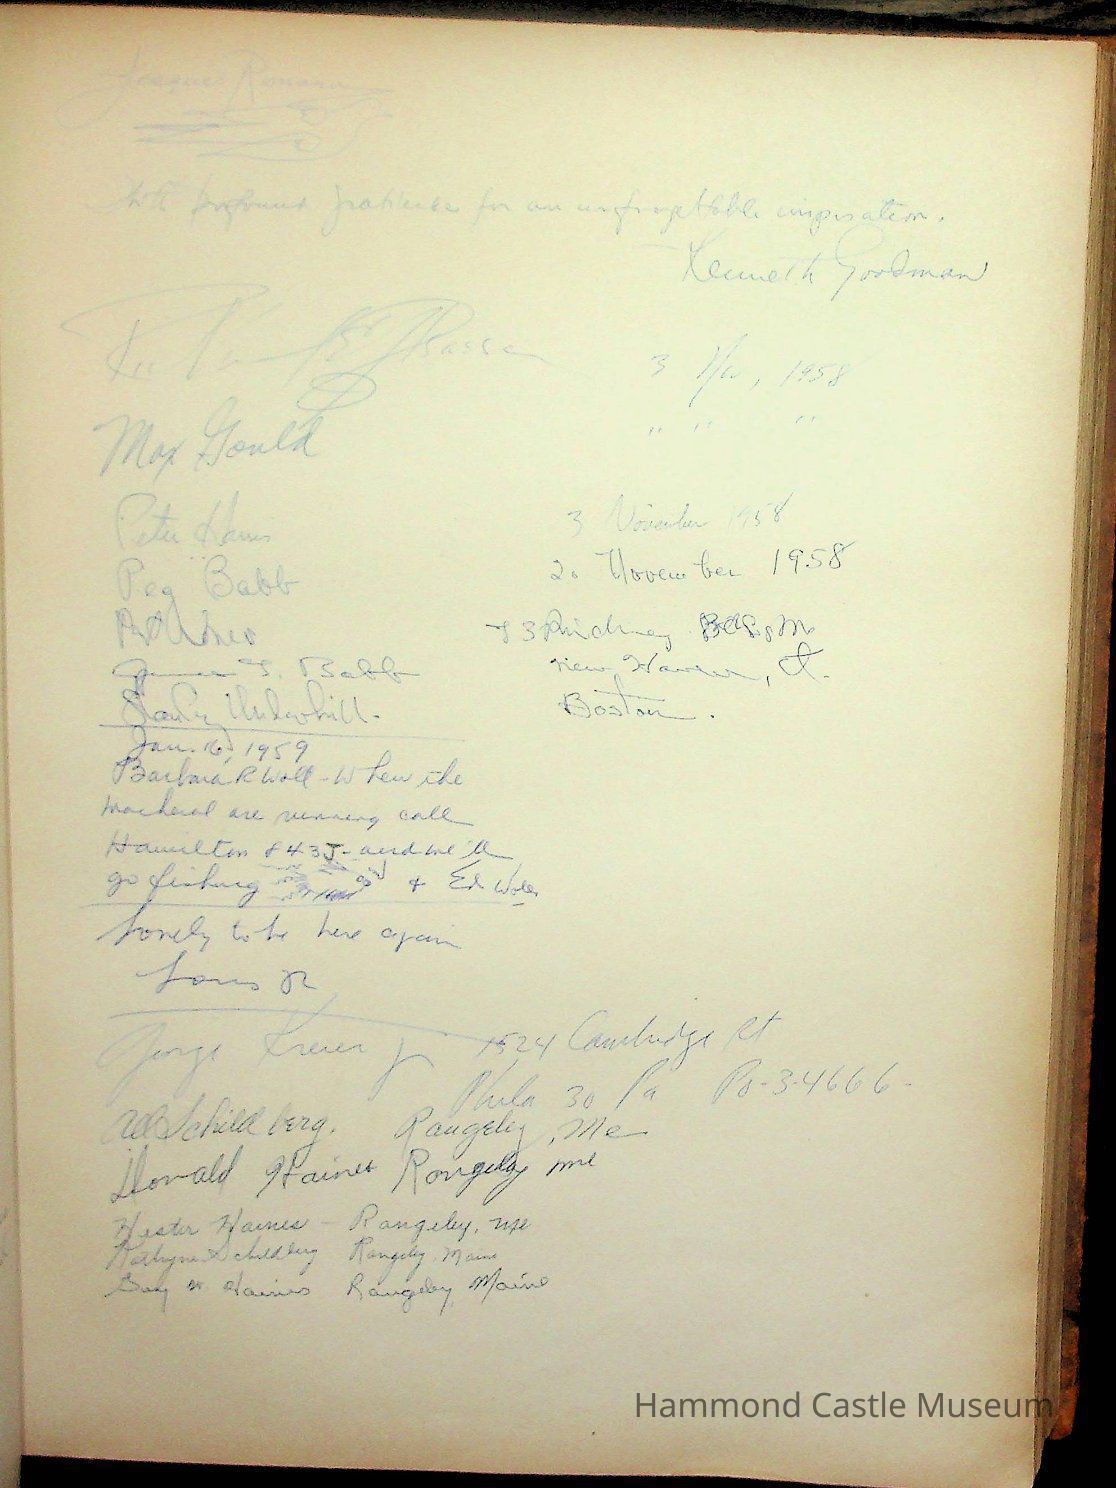 Jacques Romano
With profound gratitude for an unforgettable inspiration.
Kenneth Goodman
3 Nov, 1958
Max Gould " " "
Peter Harris 3 November 1958
Peg Babb 20 November 1958
Pinckney
James T. Babb New Haven, Ct.
Stanley Underhill. Boston.
Jan. 16, 1959
Barbara R Woll - When the
mackerel are running call
Hamilton 843J - and we'll
go fishing & Ed Woll
Lovely to be here again
Louis
George Kreier Jr 1524 Cambridge St
Phila 30 Pa Po-3-4666-
Schildberg. Rangeley, Me
Donald Haines Rangeley Me
Hester Haines - Rangeley, Me
Kathryn Schildberg Rangeley, Maine
Guy W Haines Rangeley, Maine
Hammond Castle Museum